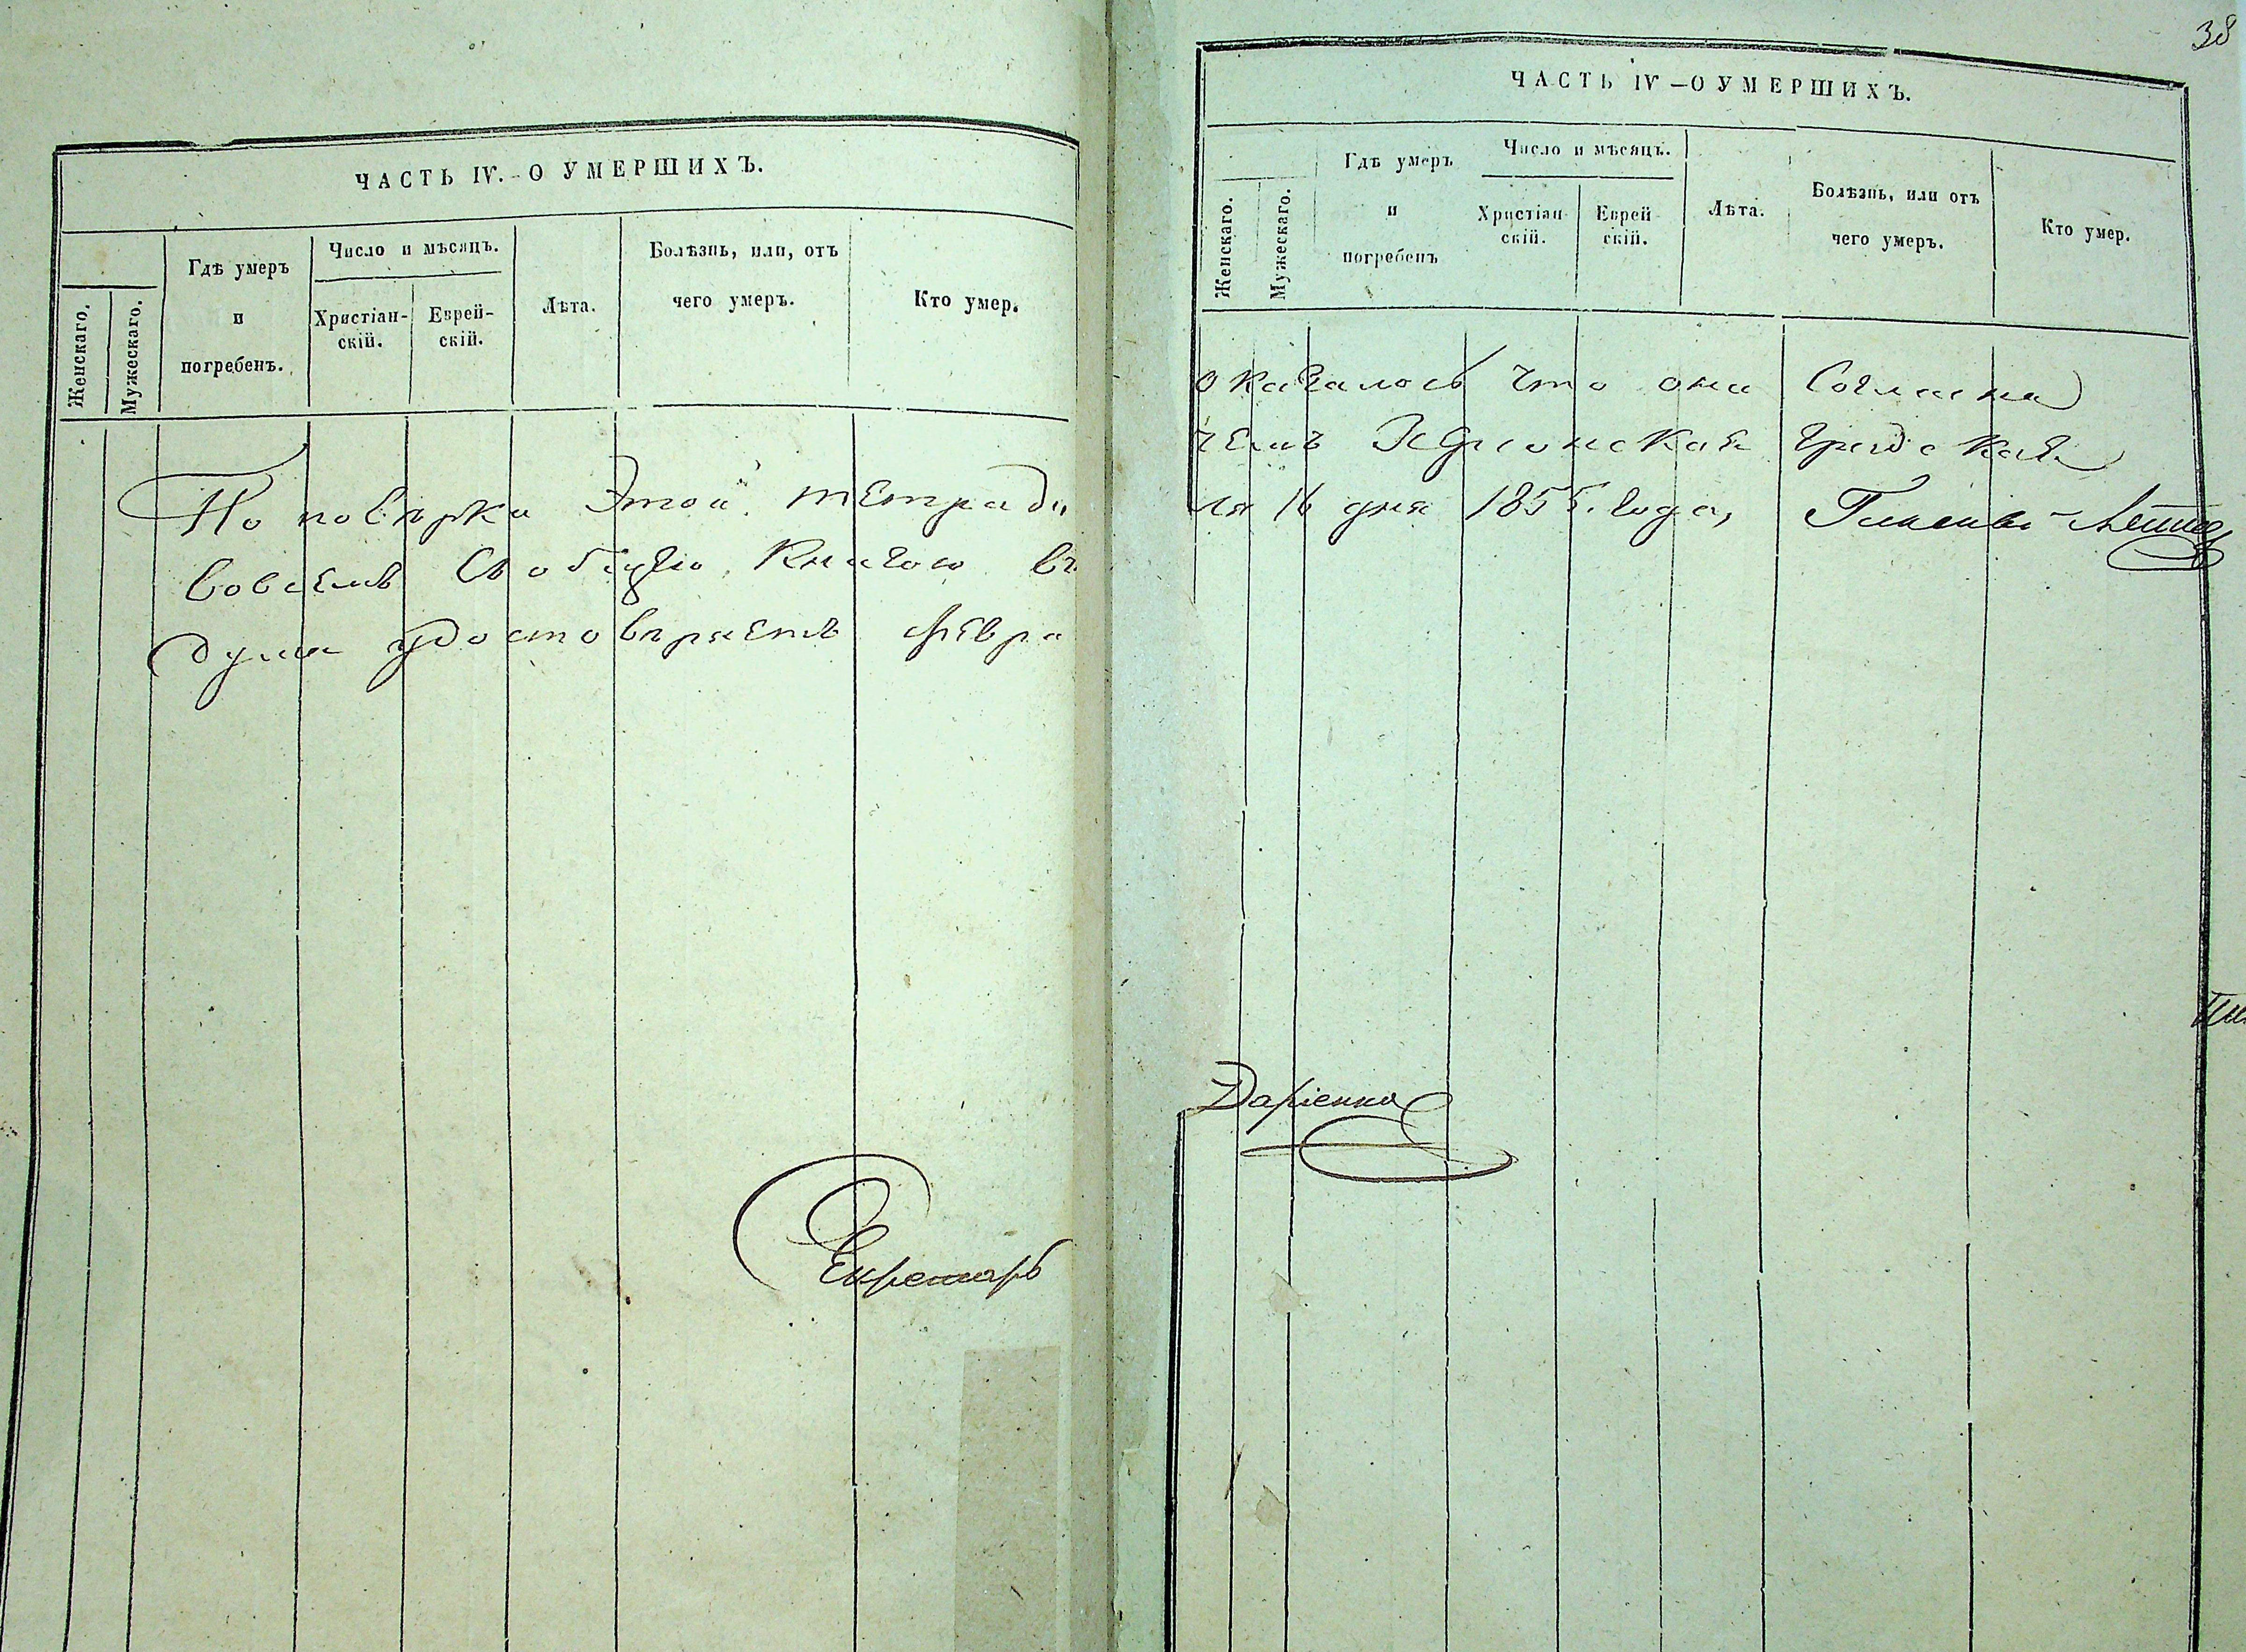 ЧАСТЬ IV.-О УМЕРШИХЪ.
Женскаго.
Мужескаго.
Гдѣ умеръ
и
погребенъ.
Число и мѣсяцъ.
Христіан-
скій.
Еврей-
скій.
Лѣта.
Болѣзнь, или, отъ
чего умеръ.
Кто умер.
По повѣрки Этой тетради
вовсемъ Съобщею Книгою въ
дума удостовѣряетъ февра
Секретарь
38
ЧАСТЬ IV-О УМЕРШИХЪ.
Женскаго.
Мужескаго.
Гдѣ умеръ
и
погребенъ
Число и мѣсяцъ.
Христіан-
скій.
Еврей-
скій.
Лѣта.
Болѣзнь, или отъ
чего умеръ.
Кто умер.
оказалось что она Согласна
чемъ Херсонская градская
ля 16 дня 1855. года,
Даріенко